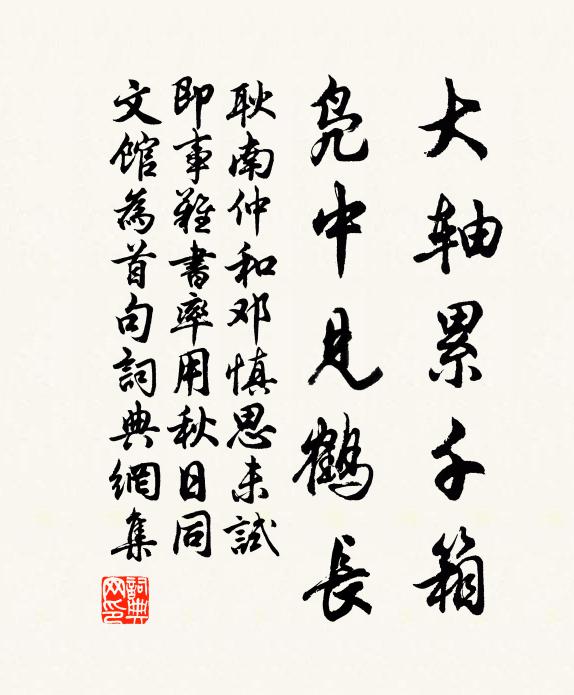 大轴累千箱
凫中见鹤長
耿南仲和邓慎思未試
即事難書率用秋日同
文馆為首句詞典網集
詞典网印